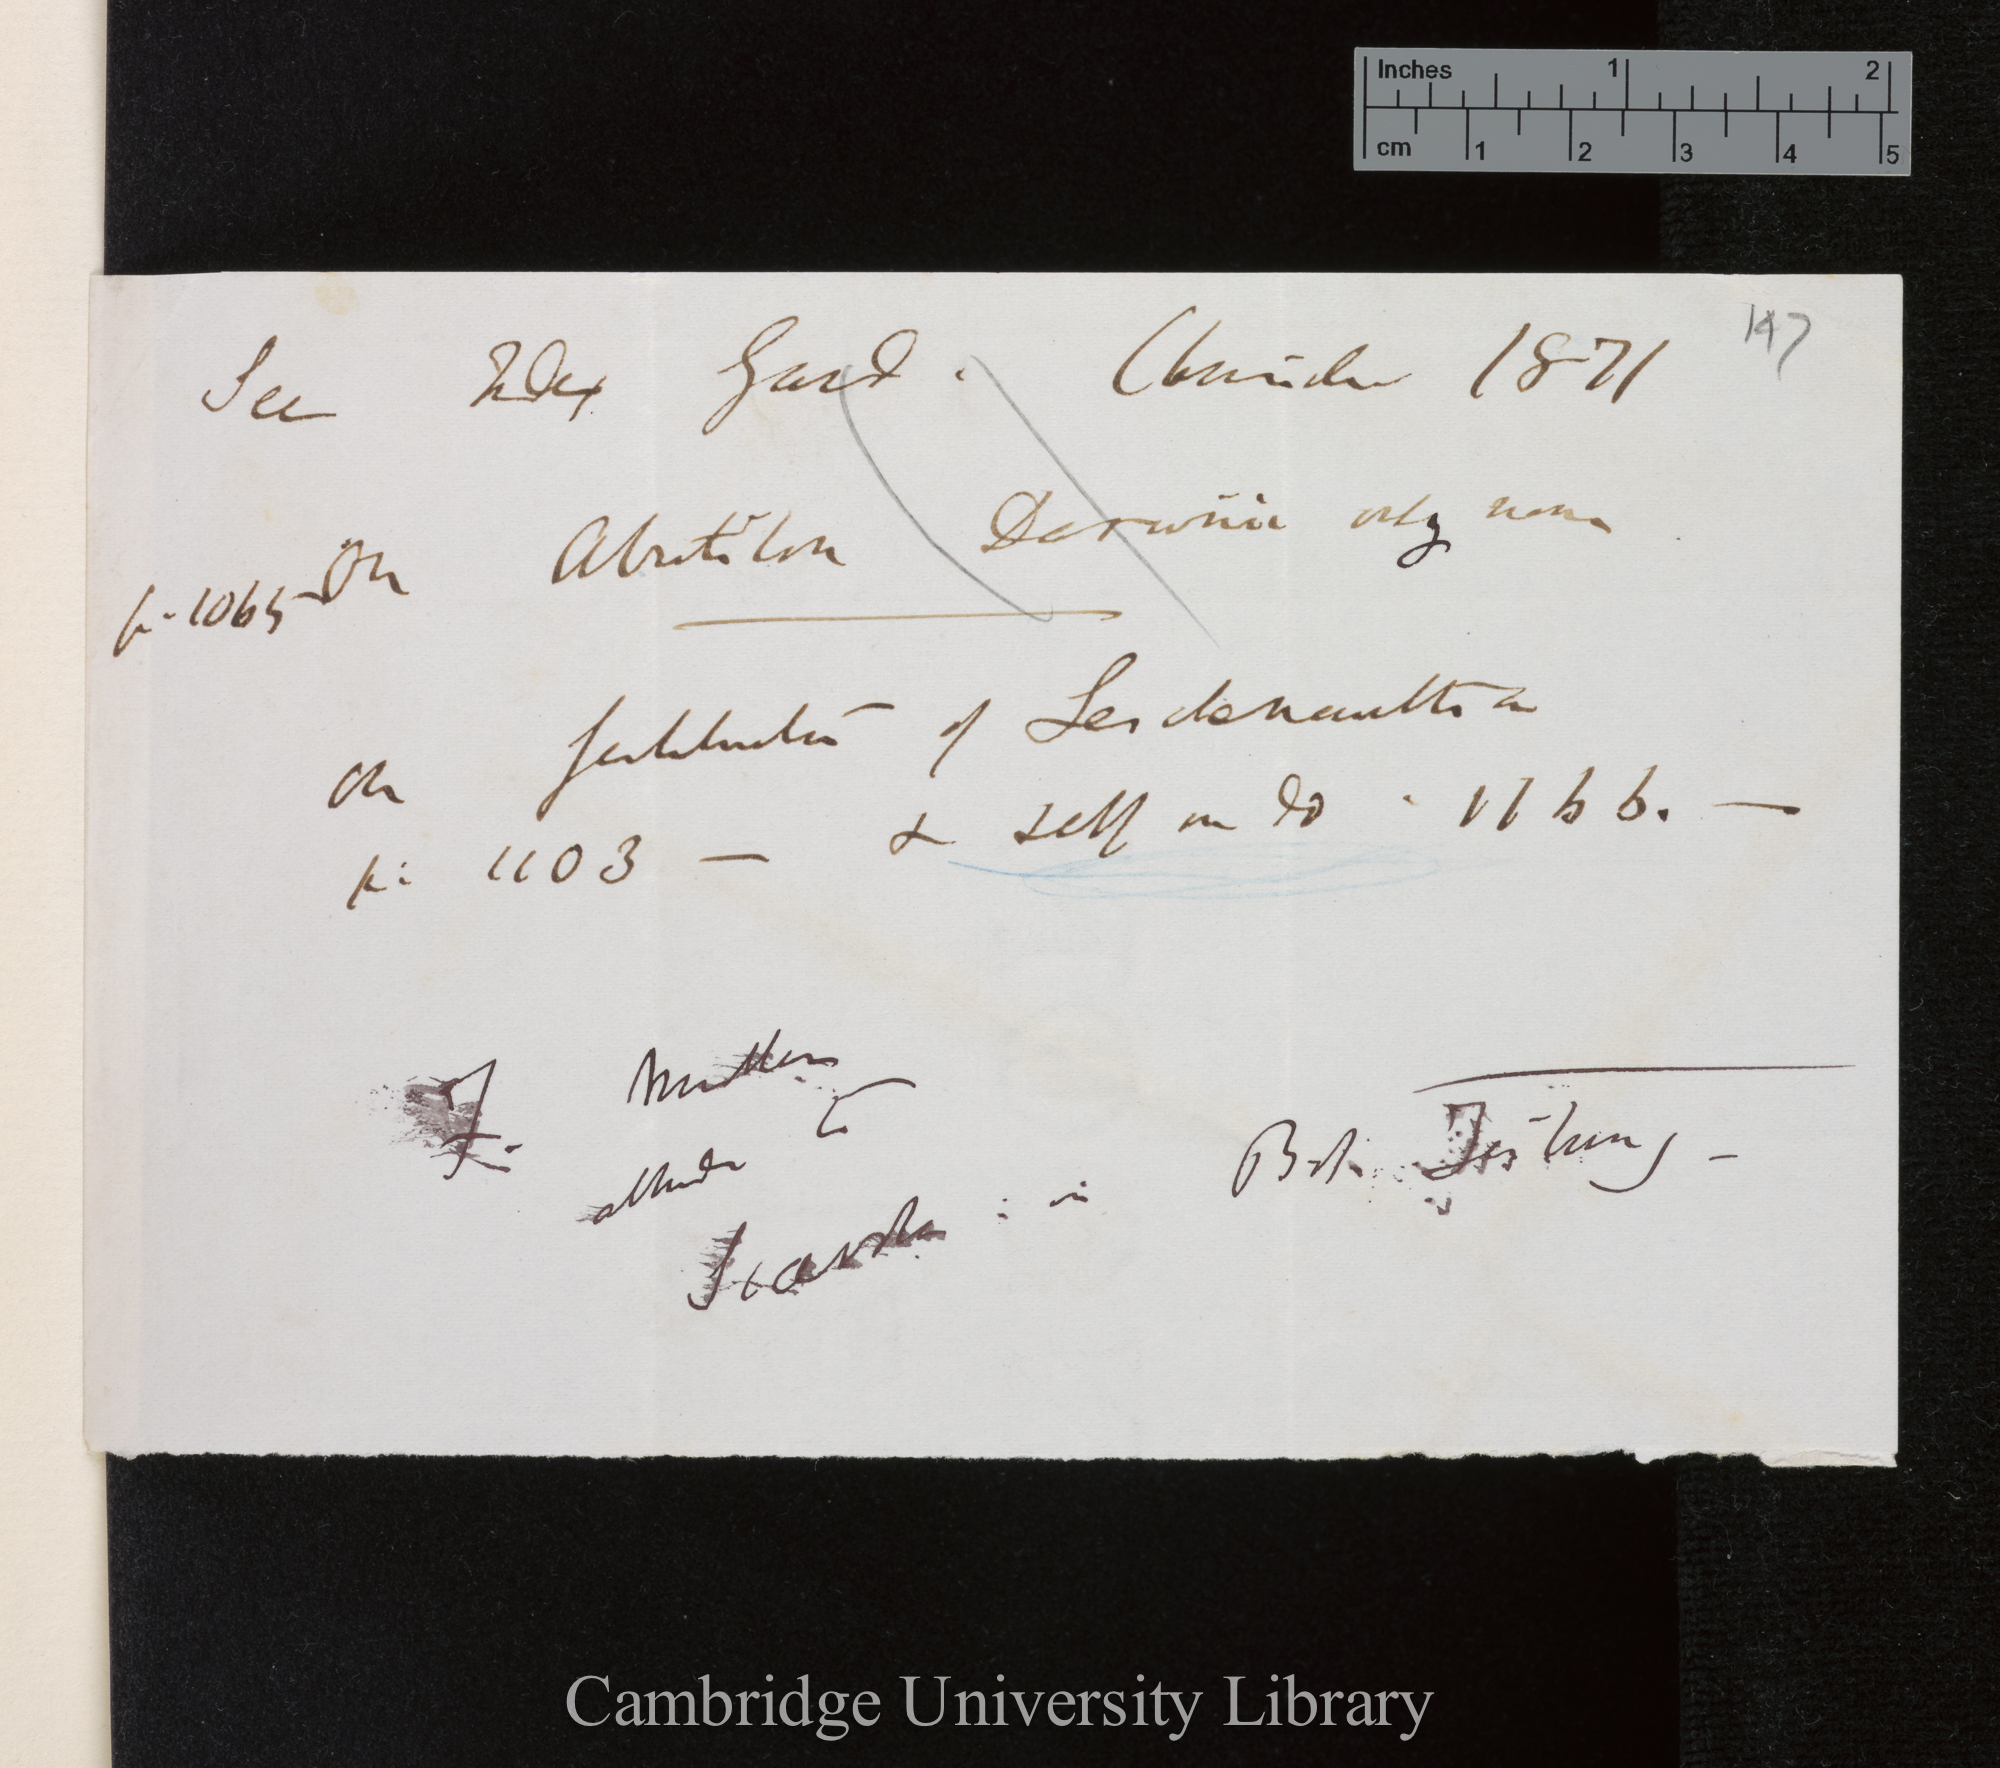 Inches 1 2
cm 1 2 3 4 5
147
See Index Gard. Chronicle 1871
On Abutilon Darwinii only name
p. 1065
On fertilisation of Leschenaultia
p. 1103 — & self on do. 1166. —
F. Müller
alludes to
Scaevola : in Bot. Zeitung —
Cambridge University Library